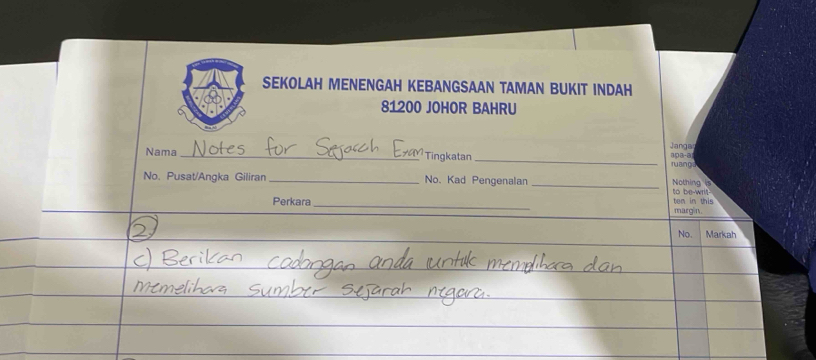 SEKOLAH MENENGAH KEBANGSAAN TAMAN BUKIT INDAH
81200 JOHOR BAHRU
Nama Notes for Sejarah Exam Tingkatan
No. Pusat/Angka Giliran No. Kad Pengenalan
Perkara
Nothing
to be writ-
ten in this
margin.
No. Markah
2
c) Berikan cadangan anda untuk memelihara dan
memelihara sumber sejarah negara.